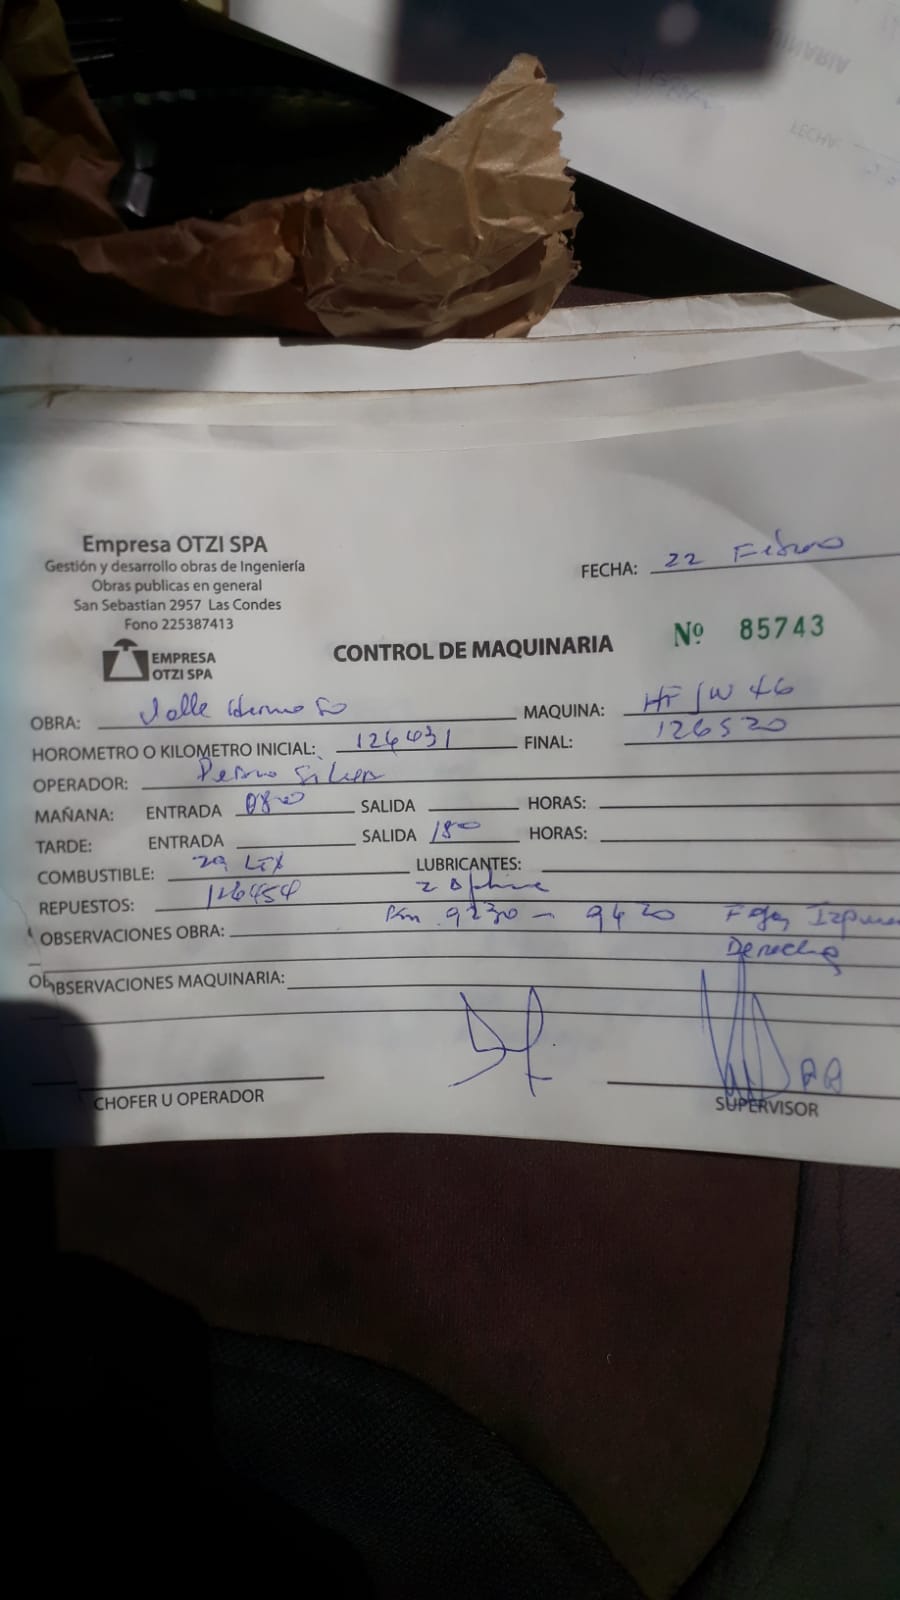 Empresa OTZI SPA
Gestión y desarrollo obras de Ingeniería
Obras publicas en general
San Sebastian 2957 Las Condes
Fono 225387413
EMPRESA
OTZI SPA
FECHA: 22 Febrero
CONTROL DE MAQUINARIA
Nº 85743
OBRA: Valle Hermoso
MAQUINA: HF JW 46
HOROMETRO O KILOMETRO INICIAL: 126431
FINAL: 126520
OPERADOR: Pedro Silva
MAÑANA: ENTRADA 0800 SALIDA HORAS:
TARDE: ENTRADA SALIDA 1800 HORAS:
COMBUSTIBLE: 29 LTX LUBRICANTES:
REPUESTOS: 126454 2
9230 - 9420
OBSERVACIONES OBRA:
Derecha
OBSERVACIONES MAQUINARIA:
CHOFER U OPERADOR
SUPERVISOR